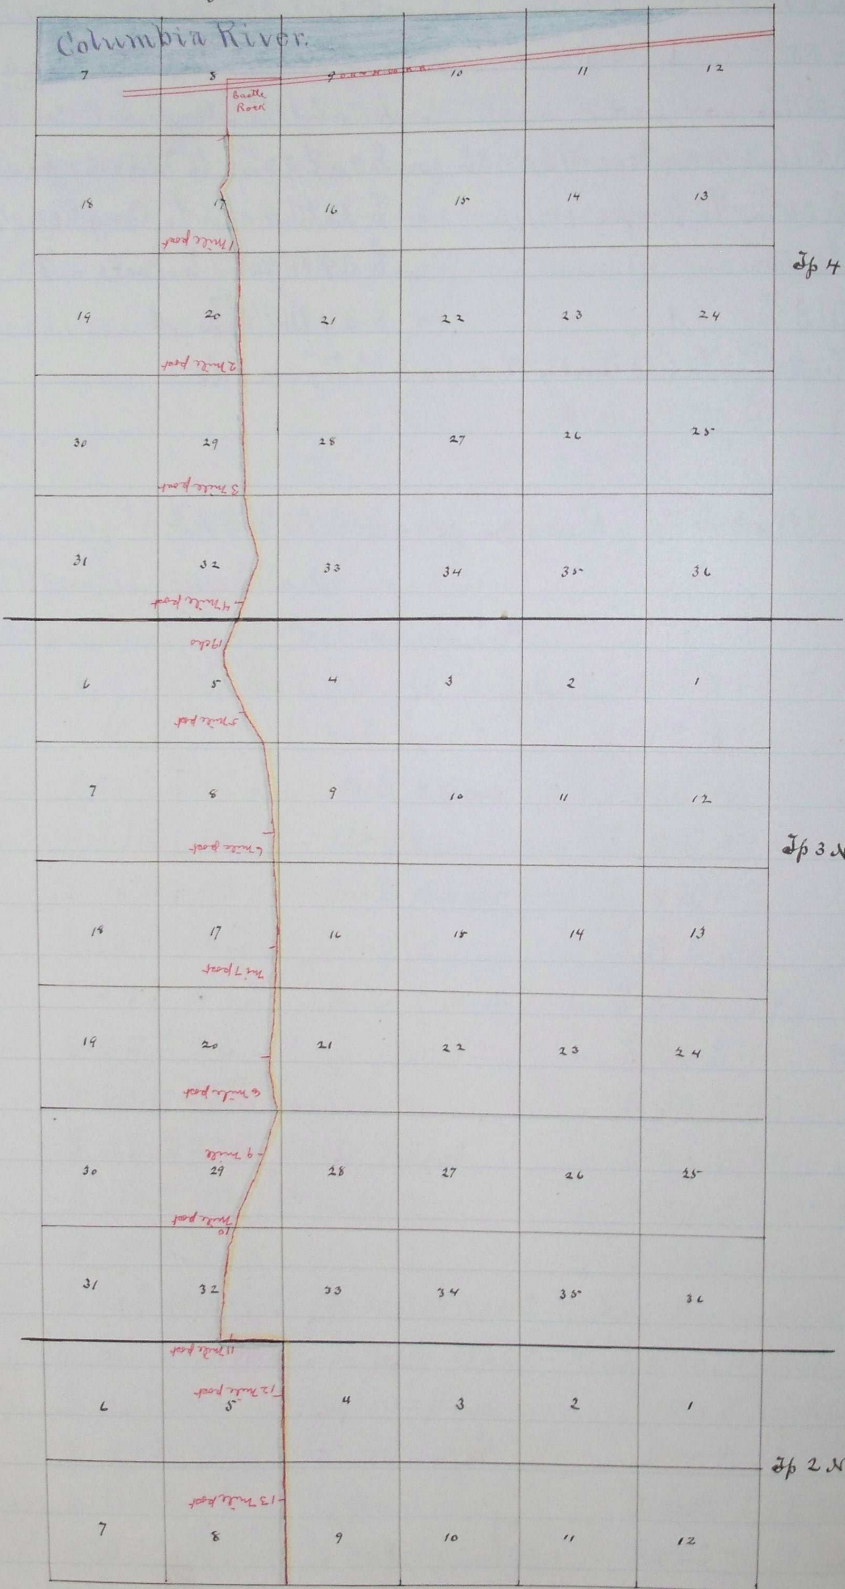 Columbia River.
7 8 9 10 11 12
Castle
Rock
18 17 16 15 14 13
1 Mile post
Tp 4
19 20 21 22 23 24
2 Mile post
30 29 28 27 26 25
3 Mile post
31 32 33 34 35 36
4 Mile post
Echo
6 5 4 3 2 1
5 Mile post
7 8 9 10 11 12
6 Mile post
Tp 3 N
18 17 16 15 14 13
7 Mi post
19 20 21 22 23 24
8 mile post
9 mile
30 29 28 27 26 25
10
Mile post
31 32 33 34 35 36
11 Mile post
12 Mile post
6 5 4 3 2 1
Tp 2 N
13 Mile post
7 8 9 10 11 12